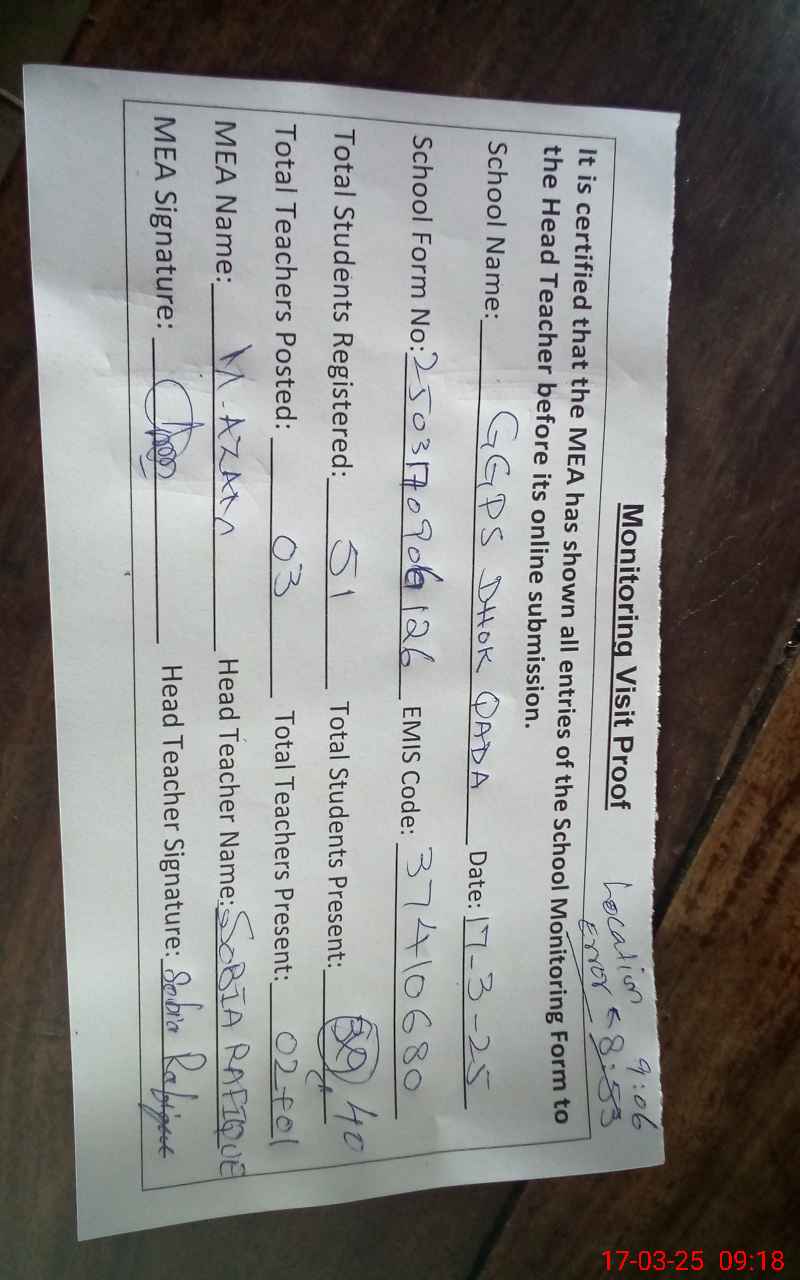 Monitoring Visit Proof
Location 9:06
Error 8:53
It is certified that the MEA has shown all entries of the School Monitoring Form to
the Head Teacher before its online submission.
School Name: GGPS DHOK QADA Date: 17-3-25
School Form No: 2503170906126 EMIS Code: 37410680
Total Students Registered: 51 Total Students Present: 40
Total Teachers Posted: 03 Total Teachers Present: 02+01
MEA Name: M-AZAM Head Teacher Name: SOBIA RAFIQUE
MEA Signature: Head Teacher Signature: Sobia Rafique
17-03-25 09:18